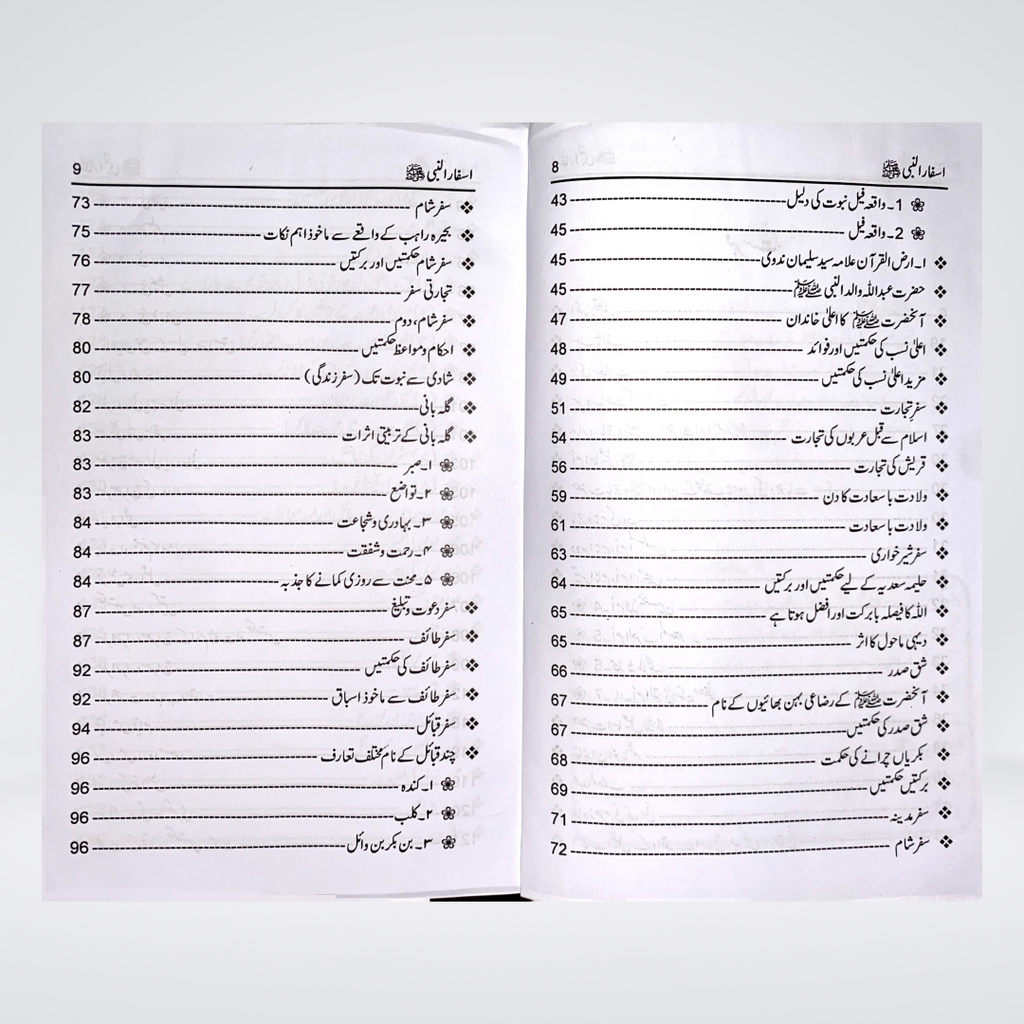 اسفار النبی ﷺ 8
1۔ واقعہ فیل نبوت کی دلیل 43
2۔ واقعہ فیل 45
ا۔ ارض القرآن علامہ سید سلیمان ندوی 45
حضرت عبداللہ والد النبی ﷺ 45
آنحضرت ﷺ کا اعلیٰ خاندان 47
اعلیٰ نسب کی حکمتیں اور فوائد 48
مزید اعلیٰ نسب کی حکمتیں 49
سفر تجارت 51
اسلام سے قبل عربوں کی تجارت 54
قریش کی تجارت 56
ولادت باسعادت کا دن 59
ولادت باسعادت 61
سفر شیر خواری 63
حلیمہ سعدیہ کے لیے حکمتیں اور برکتیں 64
اللہ کا فیصلہ بابرکت اور افضل ہوتا ہے 65
دیہی ماحول کا اثر 65
شق صدر 66
آنحضرت ﷺ کے رضاعی بہن بھائیوں کے نام 67
شق صدر کی حکمتیں 67
بکریاں چرانے کی حکمت 68
برکتیں حکمتیں 69
سفر مدینہ 71
سفر شام 72
اسفار النبی ﷺ 9
سفر شام 73
بحیرہ راہب کے واقعے سے ماخوذ اہم نکات 75
سفر شام حکمتیں اور برکتیں 76
تجارتی سفر 77
سفر شام، دوم 78
احکام و مواعظ حکمتیں 80
شادی سے نبوت تک (سفر زندگی) 80
گلہ بانی 82
گلہ بانی کے تربیتی اثرات 83
۱۔ صبر 83
۲۔ تواضع 83
۳۔ بہادری و شجاعت 84
۴۔ رحمت و شفقت 84
۵۔ محنت سے روزی کمانے کا جذبہ 84
سفر دعوت و تبلیغ 87
سفر طائف 87
سفر طائف کی حکمتیں 92
سفر طائف سے ماخوذ اسباق 92
سفر قبائل 94
چند قبائل کے نام مختلف تعارف 96
۱۔ کندہ 96
۲۔ کلب 96
۳۔ بن بکر بن وائل 96